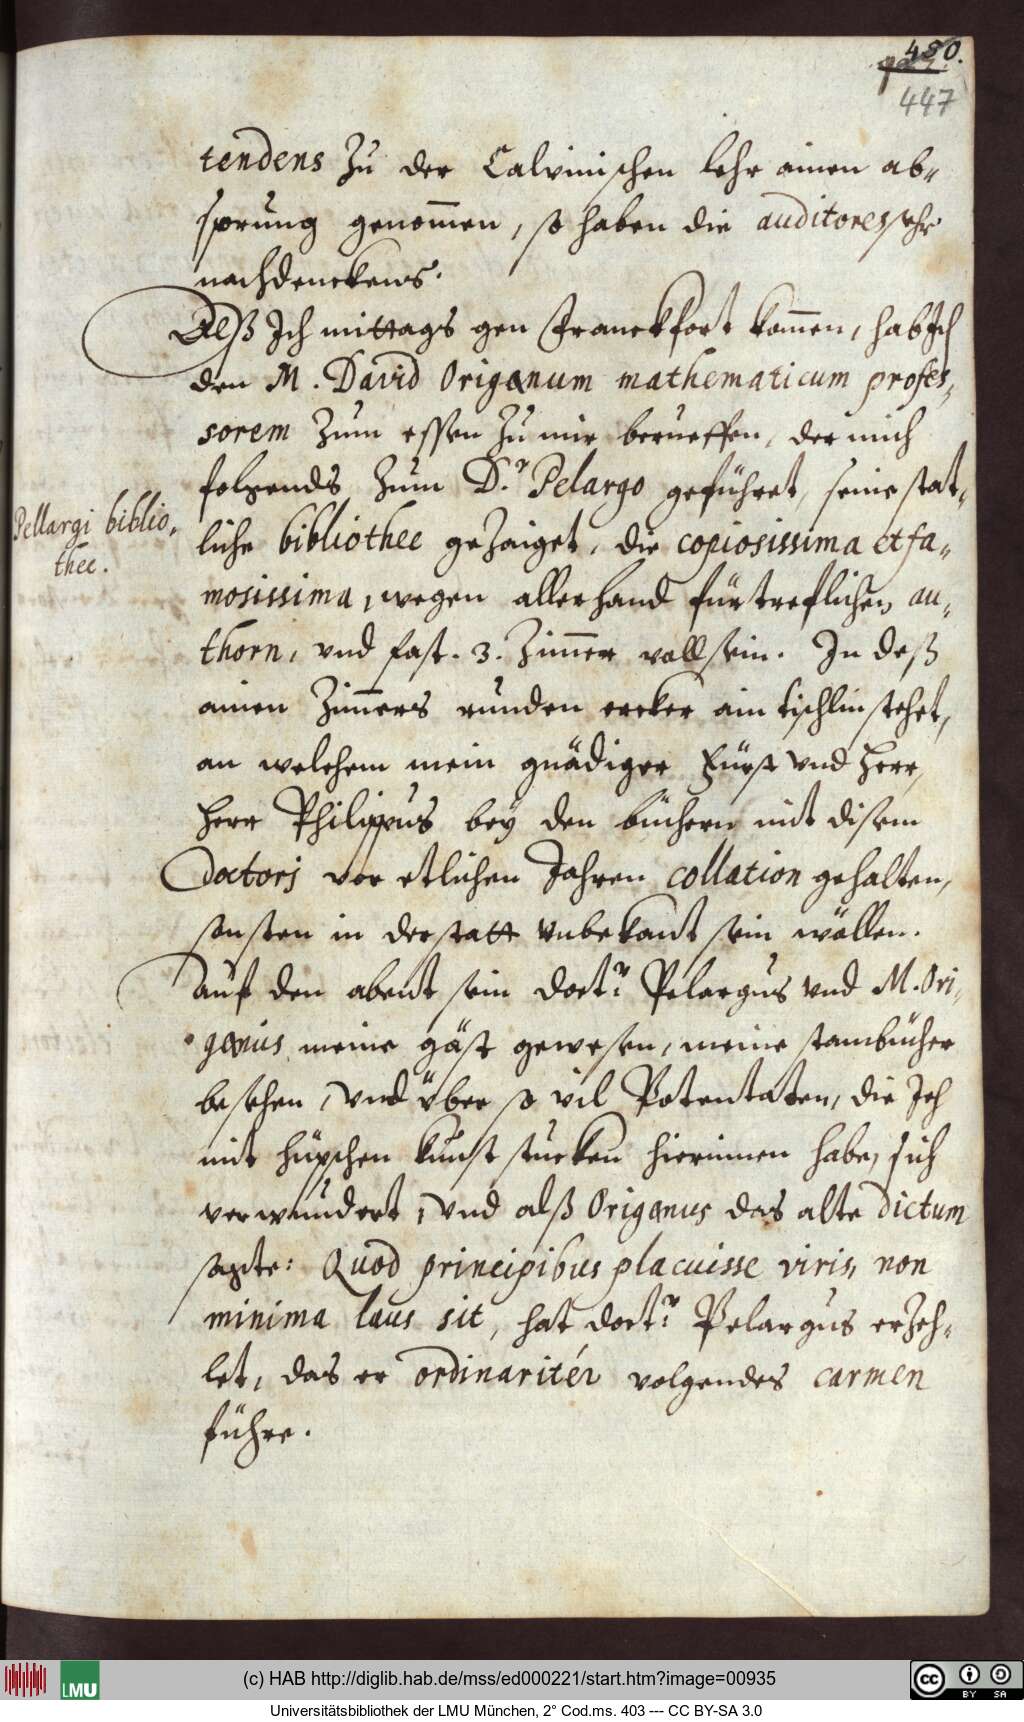 450.
447
tendens zu der Calvinischen lehr ainen ab-
sprung genommen, so haben die auditores sehr
nachdenckens.
Alß Ich mittags gen Franckfort kommen, hab Ich
den M. David Origanum mathematicum profes-
sorem zum essen zu mir berueffen, der mich
folgends zum D.r Pelargo geführet, seine stat-
Pellargi biblio-
thec.
liche bibliothec gezaiget, die copiosissima et fa-
mosissima, wegen allerhand fürtreflichen au-
thorn, vnd fast .3. Zimmer voll sein. In deß
ainen Zimmers runden ercker ain tischlin stehet,
an welchem mein gnädiger Fürst vnd Herr,
Herr Philippus bey den büchern mit disem
Doctorj vor etlichen Jahren collation gehalten,
sonsten in der statt vnbekant sein wöllen.
Auf den abent sein doct.r Pelargus vnd M. Ori-
ganus meine gäst gewesen, meine stambücher
besehen, vnd über so vil Potentaten, die Ich
mit hüpschen kunst stucken hierinnen habe, sich
verwundert, vnd alß Origanus das alte dictum
sagte: Quod principibus placuisse viris, non
minima laus sit, hat doct.r Pelargus erzeh-
let, das er ordinaritér volgendes carmen
führe.
(c) HAB http://diglib.hab.de/mss/ed000221/start.htm?image=00935
LMU
cc BY SA
Universitätsbibliothek der LMU München, 2° Cod.ms. 403 --- CC BY-SA 3.0